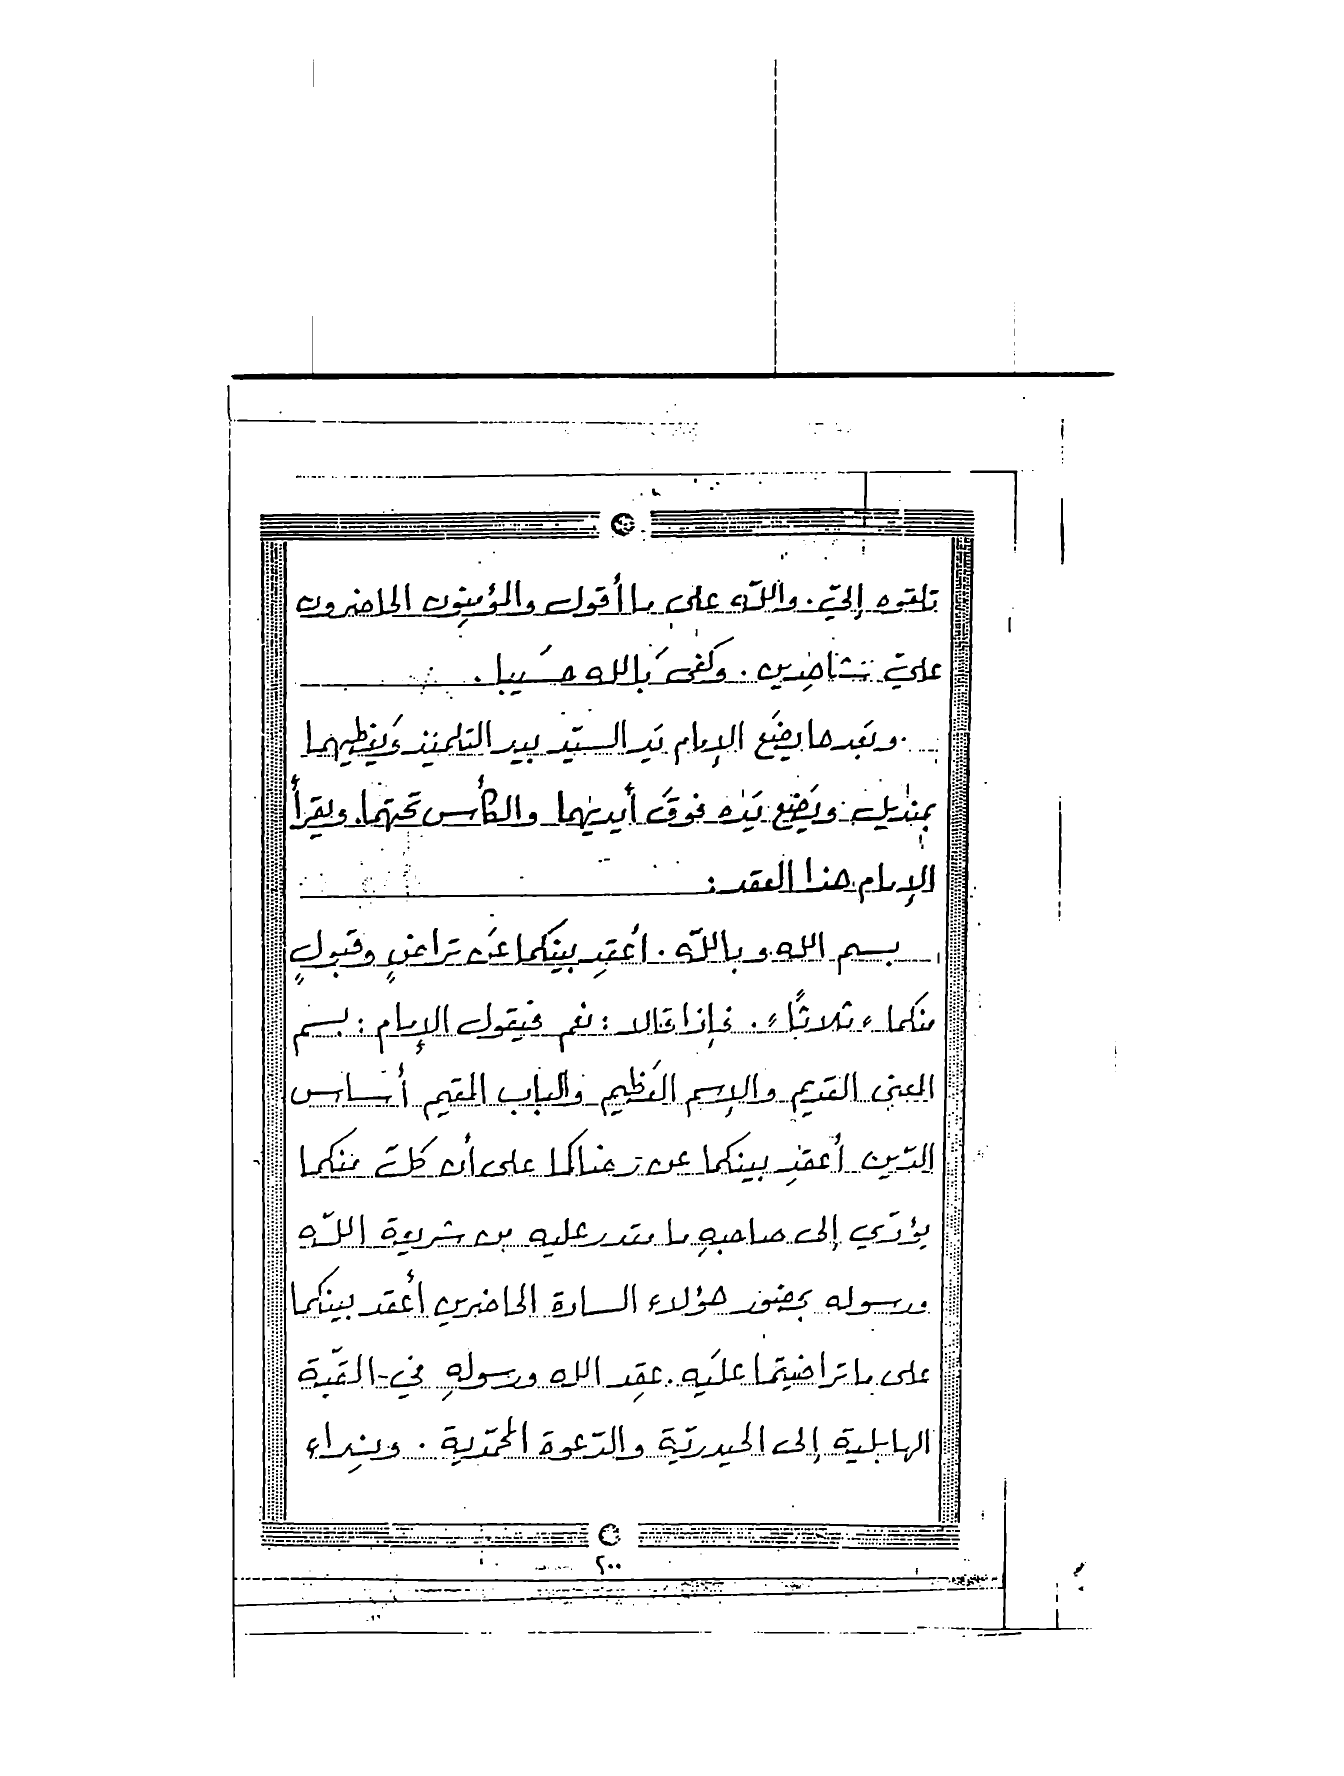 تلقوه إليّ. واللّه على ما أقول والمؤمِنون الحاضرون
عليّ شاهِدين. وكفى بالله حسَيبا.
وبَعدها يضَع الإمام يَد السيّد بيد التلميذ وَيغطيهما
بمنديل ويَضع يَده فوقَ أيديهما والكأس تحتهما. ويقرأ
الإمام هذا العقد:
بسم الله وباللّه. أعقِد بينكما عَن تراضٍ وقبولٍ
منكما «ثلاثًا». فإذا قالا: نعم فيقول الإمام: بسم
المعنى القديم والإسم العَظيم والباب المقيم أساس
الدّين أعقد بينكما عن رضاكما على أن كلّ منكما
يؤدّي إلى صاحبهِ ما يقدر عليه من شريعة اللّه
ورسوله بحضور هؤلاء السادة الحاضرين أعقد بينكما
على ما تراضيتما علَيه. عقِد الله ورسولهِ في القبّة
الهابلية إلى الحيدريّة والدّعوة المحمّدية. وبنِداء
٢٠٠